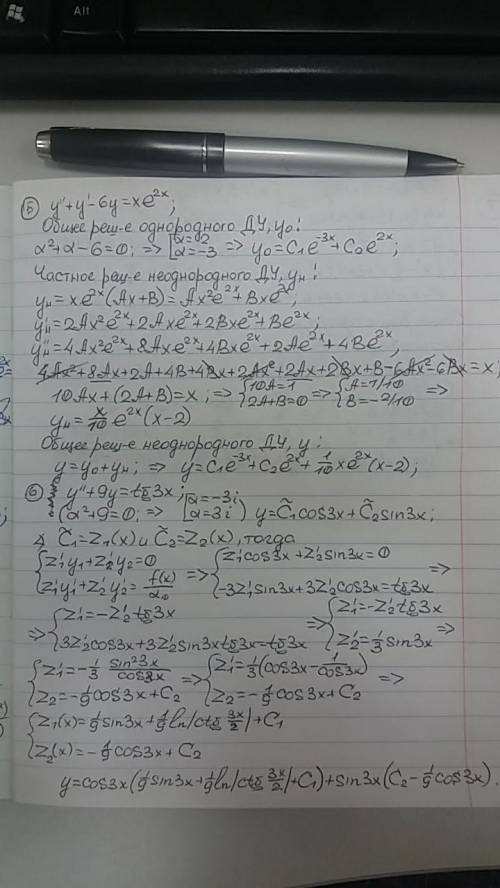 Alt
⑤ y''+y'-6y=xe^{2x};
Общее реш-е однородного ДУ, y₀:
α²+α-6=0; => [α=2 α=-3 => y₀=C₁e^{-3x}+C₂e^{2x};
Частное реш-е неоднородного ДУ, yн:
yн=xe^{2x}(Ax+B)=Ax²e^{2x}+Bxe^{2x};
y'н=2Ax²e^{2x}+2Axe^{2x}+2Bxe^{2x}+Be^{2x};
y''н=4Ax²e^{2x}+8Axe^{2x}+4Bxe^{2x}+2Ae^{2x}+4Be^{2x},
4Ax²+8Ax+2A+4B+4Bx+2Ax²+2Ax+2Bx+B-6Ax²-6Bx=x;
10Ax+(2A+B)=x; => {10A=1 2A+B=0 => {A=1/10 B=-2/10 =>
yн=x/10 e^{2x}(x-2)
Общее реш-е неоднородного ДУ, y:
y=y₀+yн; => y=C₁e^{-3x}+C₂e^{2x}+1/10 xe^{2x}(x-2);
⑥ y''+9y=tg3x;
(α²+9=0; => [α=-3i α=3i) y=C̃₁cos3x+C̃₂sin3x;
C̃₁=Z₁(x) и C̃₂=Z₂(x), тогда
{Z'₁y₁+Z'₂y₂=0 => {Z'₁cos3x+Z'₂sin3x=0
Z'₁y'₁+Z'₂y'₂=f(x)/α₀ -3Z'₁sin3x+3Z'₂cos3x=tg3x =>
=> {Z'₁=-Z'₂tg3x => {Z'₁=-Z'₂tg3x
3Z'₂cos3x+3Z'₂sin3xtg3x=tg3x Z'₂=1/3 sin3x =>
{Z'₁=-1/3 sin²3x/cos3x => {Z'₁=1/3(cos3x-1/cos3x)
Z₂=-1/9 cos3x+C₂ Z₂=-1/9 cos3x+C₂ =>
{Z₁(x)=1/9 sin3x+1/9 ln|ctg 3x/2|+C₁
Z₂(x)=-1/9 cos3x+C₂
y=cos3x(1/9 sin3x+1/9 ln|ctg 3x/2|+C₁)+sin3x(C₂-1/9 cos3x).